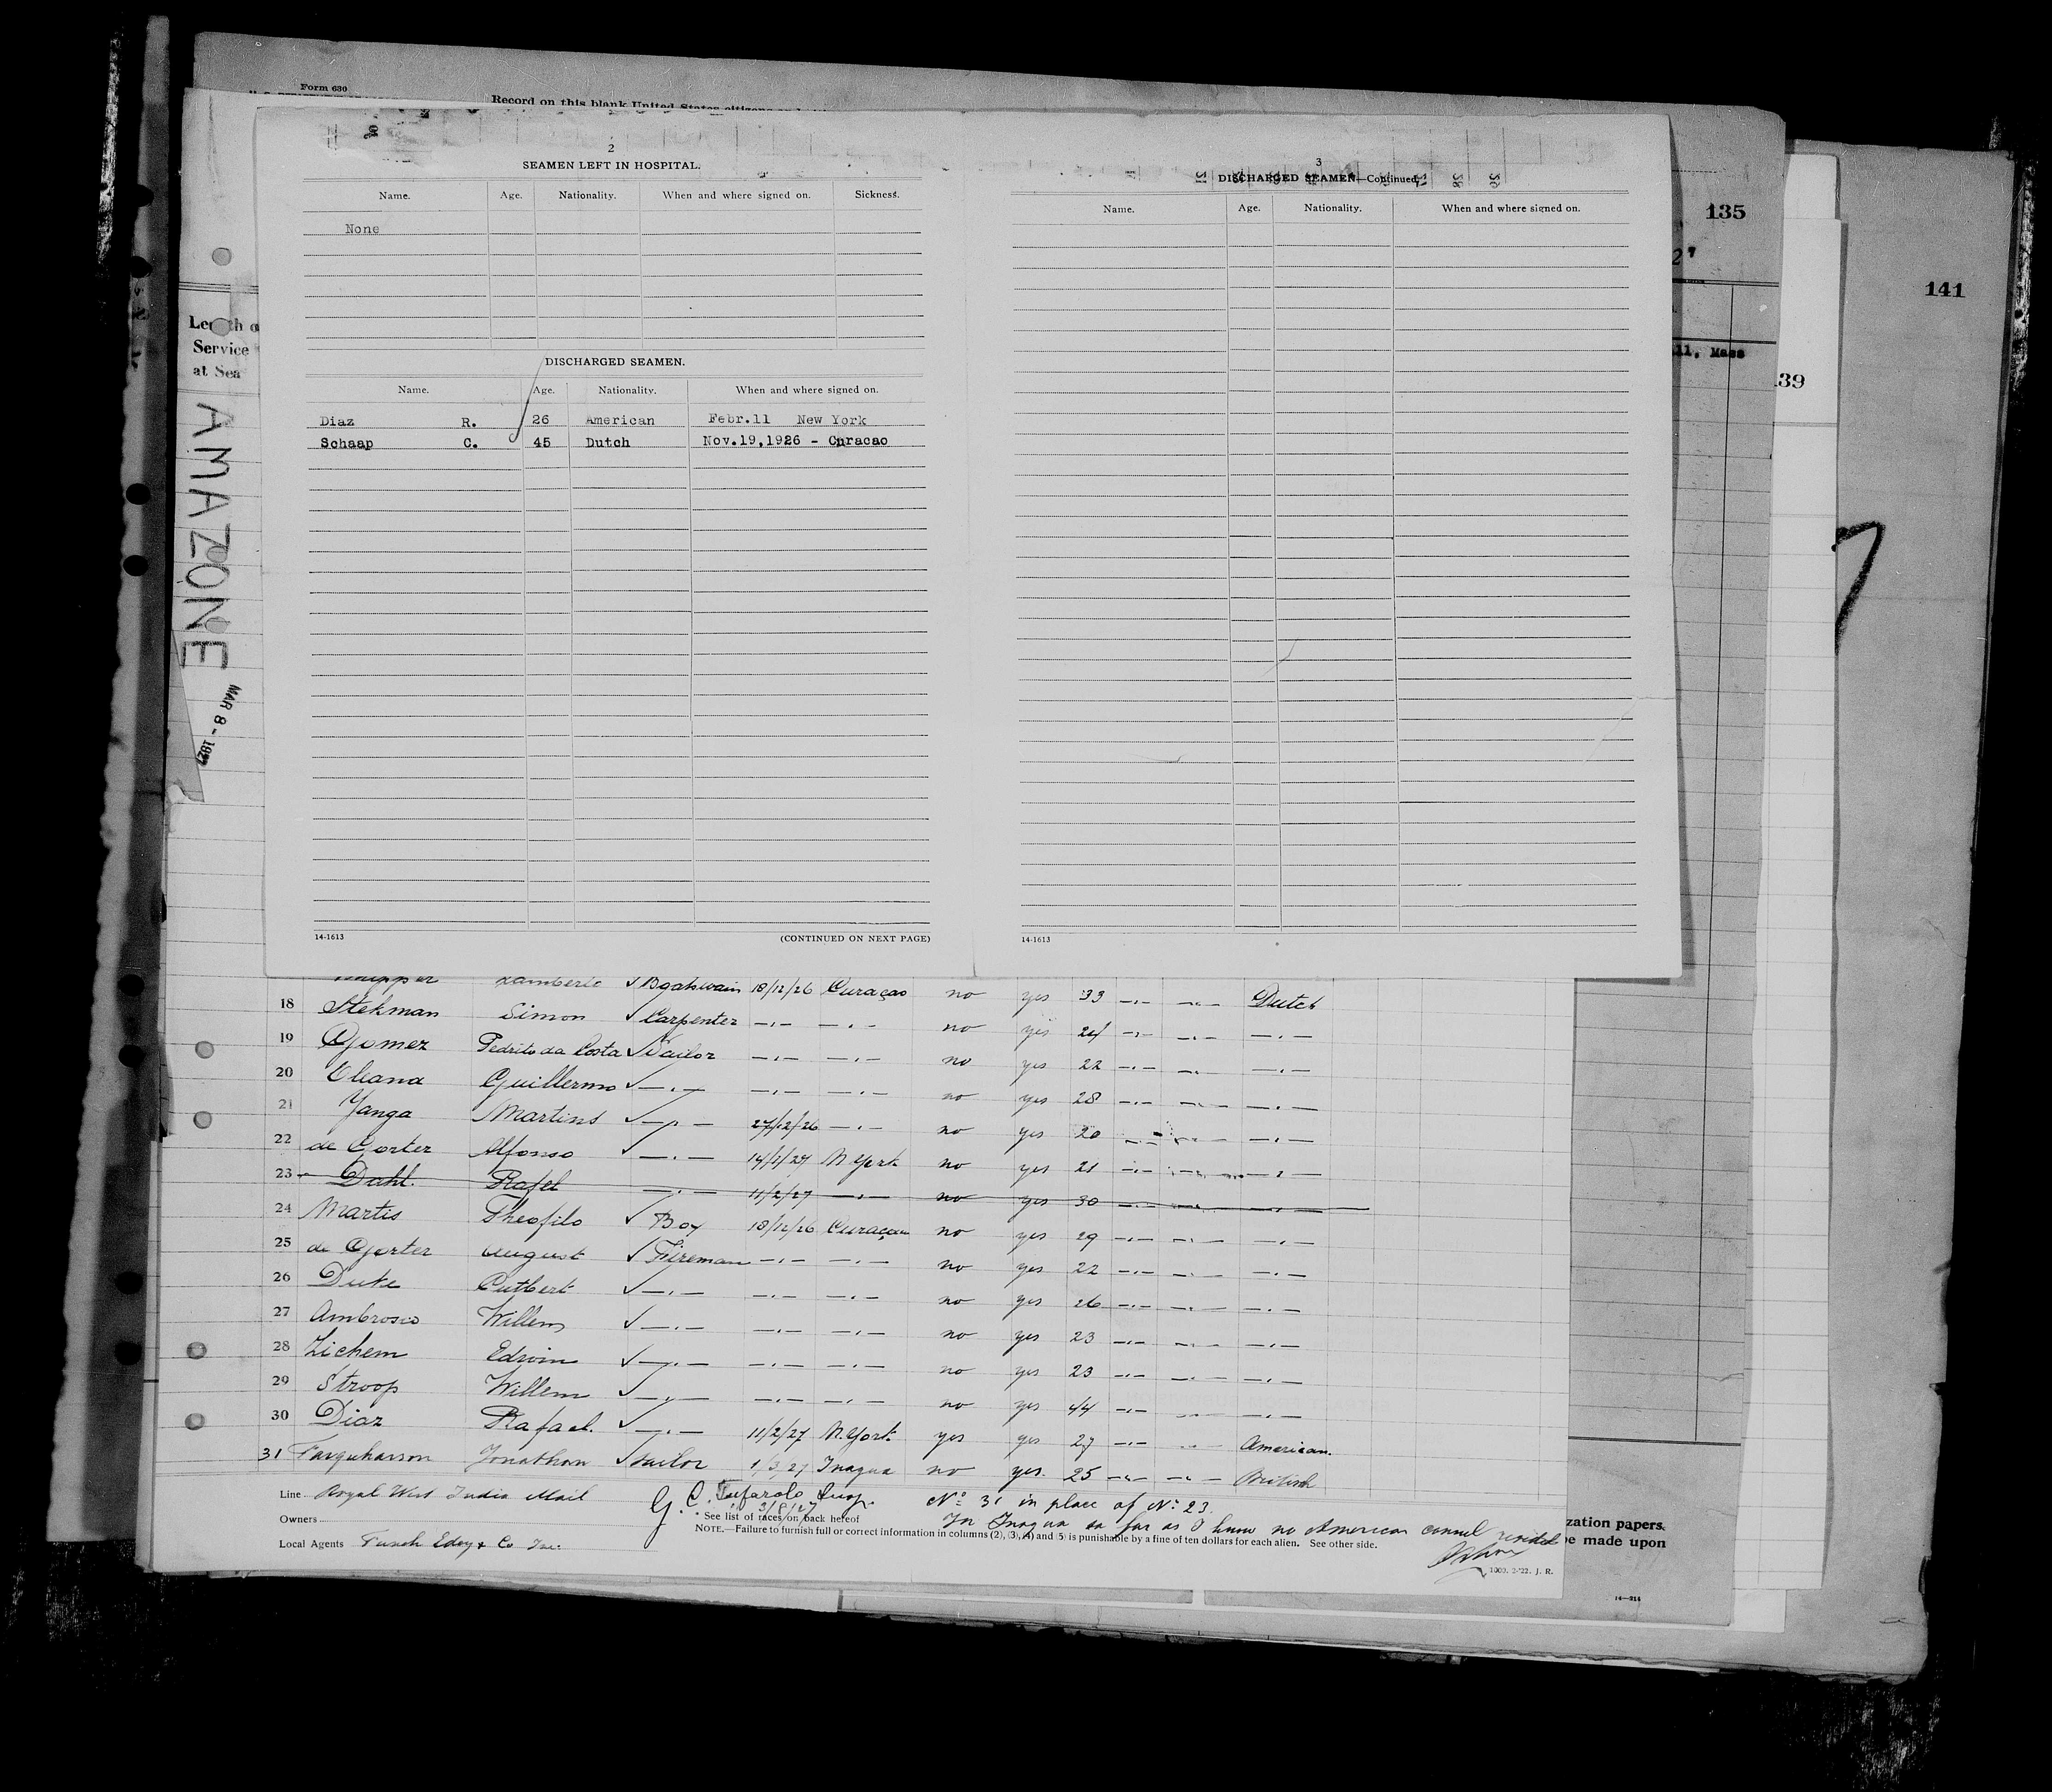 Form 630
Record on this blank United States citizens
135
141
139
ll, Mass
Length o
Service
at Sea
AMAZONE
MAR 8 - 1927
2
SEAMEN LEFT IN HOSPITAL.
Name. Age. Nationality. When and where signed on. Sickness.
None
DISCHARGED SEAMEN.
Name. Age. Nationality. When and where signed on.
Diaz R. 26 American Febr.11 New York
Schaap C. 45 Dutch Nov.19,1926 - Curacao
14-1613 (CONTINUED ON NEXT PAGE)
3
DISCHARGED SEAMEN—Continued.
Name. Age. Nationality. When and where signed on.
14-1613
Lamberto √ Boatswain 18/12/26 Curaçao no yes 33 —„— —„— Dutch
18 Stekman Simon √ Carpenter —„— —„— no yes 24 —„— —„— —„—
19 Gomez Pedrito da Costa √ Sailor —„— —„— no yes 22 —„— —„— —„—
20 Oleana Guillermo √ —„— —„— —„— no yes 28 —„— —„— —„—
21 Yanga Martins √ —„— 27/12/26 —„— no yes 20 —„— —„— —„—
22 de Gorter Alfonso √ —„— 14/1/27 N.York no yes 21 —„— —„— —„—
23 Dahl. Rafel —„— 11/2/27 —„— no yes 30 —„— —„— —„—
24 Martis Theofilo √ Boy 18/12/26 Curaçao no yes 29 —„— —„— —„—
25 de Gorter August √ Fireman —„— —„— no yes 22 —„— —„— —„—
26 Duke Cutbert √ —„— —„— —„— no yes 26 —„— —„— —„—
27 Ambrosio Willem √ —„— —„— —„— no yes 23 —„— —„— —„—
28 Zichem Edwin √ —„— —„— —„— no yes 23 —„— —„— —„—
29 Stroop Willem √ —„— —„— —„— no yes 44 —„— —„— —„—
30 Diaz Rafael. √ —„— 11/2/27 N.York yes yes 27 —„— —„— American.
31 Farquharson Jonathan √ Sailor 1/3/27 Inagua no yes. 25 —„— —„— British
Line Royal West India Mail
Owners
Local Agents Funch Edey & Co Inc.
G. C. Tufarolo Insp.
3/8/27
* See list of races on back hereof
NOTE.—Failure to furnish full or correct information in columns (2), (3), (4) and (5) is punishable by a fine of ten dollars for each alien. See other side.
No 31 in place of No 23.
In Inagua as far as I know no American consul resided
1000. 2-'22. J. R.
zation papers.
be made upon
14—214